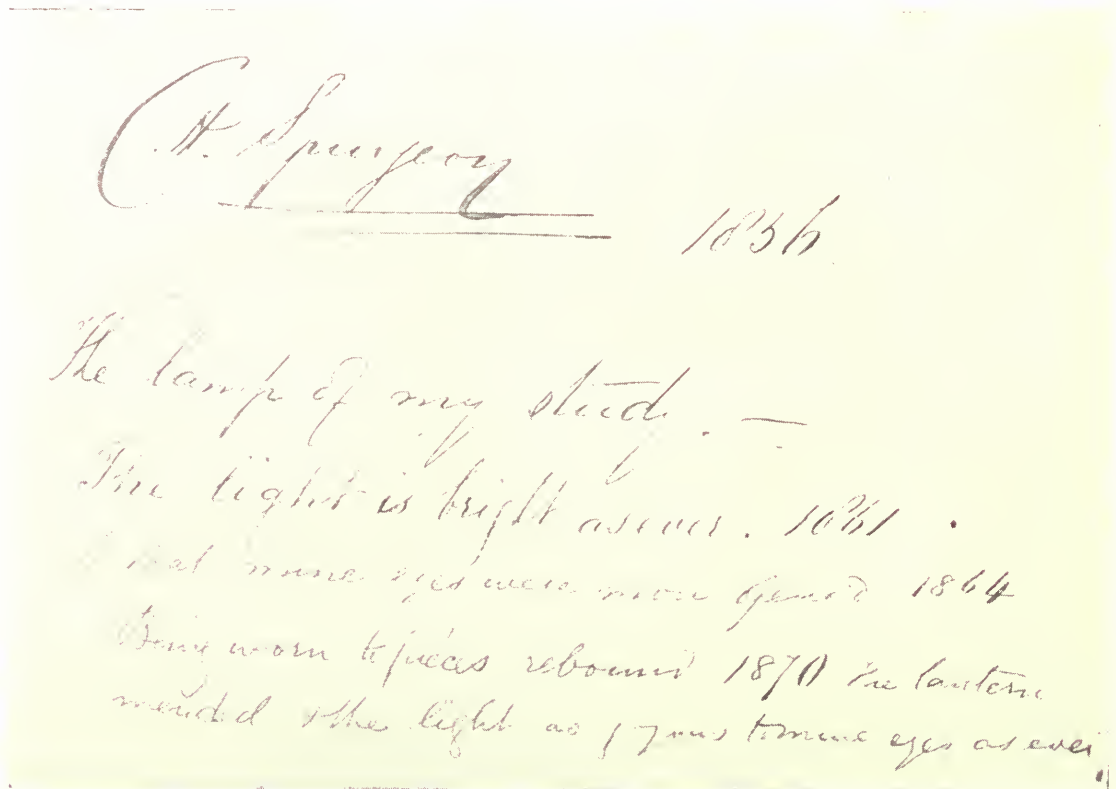 C.H. Spurgeon
1856
The lamp of my study. —
The light is bright as ever. 1861.
that mine eyes were more open'd 1864
Being worn to pieces rebound 1870 the lantern
mended & the light as joyous to mine eyes as ever